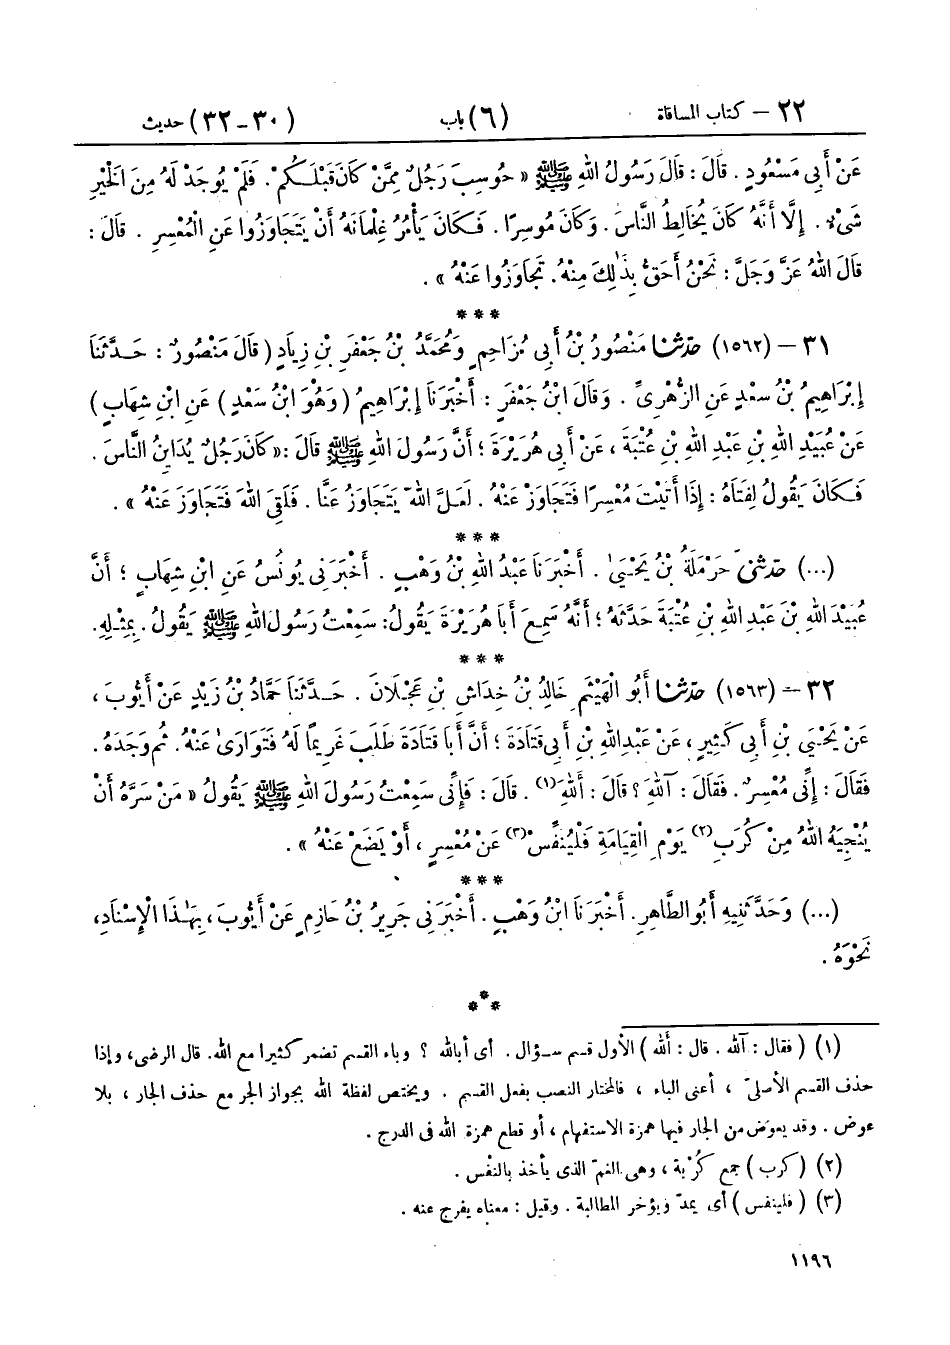 ٢٢ – كتاب المساقاة (٦) باب (٣٠-٣٢) حديث
عَنْ أَبِي مَسْعُودٍ . قَالَ : قَالَ رَسُولُ اللهِ ﷺ « حُوسِبَ رَجُلٌ مِمَّنْ كَانَ قَبْلَكُمْ . فَلَمْ يُوجَدْ لَهُ مِنَ الْخَيْرِ
شَيْءٌ . إِلَّا أَنَّهُ كَانَ يُخَالِطُ النَّاسَ . وَكَانَ مُوسِرًا . فَكَانَ يَأْمُرُ غِلْمَانَهُ أَنْ يَتَجَاوَزُوا عَنِ الْمُعْسِرِ . قَالَ :
قَالَ اللهُ عَزَّ وَجَلَّ : نَحْنُ أَحَقُّ بِذَٰلِكَ مِنْهُ . تَجَاوَزُوا عَنْهُ » .
***
٣١ – (١٥٦٢) حَدَّثَنَا مَنْصُورُ بْنُ أَبِي مُزَاحِمٍ وَمُحَمَّدُ بْنُ جَعْفَرِ بْنِ زِيَادٍ ( قَالَ مَنْصُورٌ : حَدَّثَنَا
إِبْرَاهِيمُ بْنُ سَعْدٍ عَنِ الزُّهْرِيِّ . وَقَالَ ابْنُ جَعْفَرٍ : أَخْبَرَنَا إِبْرَاهِيمُ ( وَهُوَ ابْنُ سَعْدٍ ) عَنِ ابْنِ شِهَابٍ )
عَنْ عُبَيْدِ اللهِ بْنِ عَبْدِ اللهِ بْنِ عُتْبَةَ ، عَنْ أَبِي هُرَيْرَةَ ؛ أَنَّ رَسُولَ اللهِ ﷺ قَالَ : « كَانَ رَجُلٌ يُدَايِنُ النَّاسَ .
فَكَانَ يَقُولُ لِفَتَاهُ : إِذَا أَتَيْتَ مُعْسِرًا فَتَجَاوَزْ عَنْهُ . لَعَلَّ اللهَ يَتَجَاوَزُ عَنَّا . فَلَقِيَ اللهَ فَتَجَاوَزَ عَنْهُ » .
***
(...) حَدَّثَنِي حَرْمَلَةُ بْنُ يَحْيَىٰ . أَخْبَرَنَا عَبْدُ اللهِ بْنُ وَهْبٍ . أَخْبَرَنِي يُونُسُ عَنِ ابْنِ شِهَابٍ ؛ أَنَّ
عُبَيْدَ اللهِ بْنَ عَبْدِ اللهِ بْنِ عُتْبَةَ حَدَّثَهُ ؛ أَنَّهُ سَمِعَ أَبَا هُرَيْرَةَ يَقُولُ : سَمِعْتُ رَسُولَ اللهِ ﷺ يَقُولُ . بِمِثْلِهِ .
***
٣٢ – (١٥٦٣) حَدَّثَنَا أَبُو الْهَيْثَمِ خَالِدُ بْنُ خِدَاشِ بْنِ عَجْلَانَ . حَدَّثَنَا حَمَّادُ بْنُ زَيْدٍ عَنْ أَيُّوبَ ،
عَنْ يَحْيَىٰ بْنِ أَبِي كَثِيرٍ ، عَنْ عَبْدِ اللهِ بْنِ أَبِي قَتَادَةَ ؛ أَنَّ أَبَا قَتَادَةَ طَلَبَ غَرِيمًا لَهُ فَتَوَارَىٰ عَنْهُ . ثُمَّ وَجَدَهُ .
فَقَالَ : إِنِّي مُعْسِرٌ . فَقَالَ : آللهِ ؟ قَالَ : أَللهِ (١) . قَالَ : فَإِنِّي سَمِعْتُ رَسُولَ اللهِ ﷺ يَقُولُ « مَنْ سَرَّهُ أَنْ
يُنْجِيَهُ اللهُ مِنْ كُرَبِ (٢) يَوْمِ الْقِيَامَةِ فَلْيُنَفِّسْ (٣) عَنْ مُعْسِرٍ ، أَوْ يَضَعْ عَنْهُ » .
***
(...) وَحَدَّثَنِيهِ أَبُو الطَّاهِرِ . أَخْبَرَنَا ابْنُ وَهْبٍ . أَخْبَرَنِي جَرِيرُ بْنُ حَازِمٍ عَنْ أَيُّوبَ ، بِهَٰذَا الْإِسْنَادِ ،
نَحْوَهُ .
***
(١) ( فقال : آلله . قال : أَلله ) الأول قسم سؤال . أى أبالله ؟ وباء القسم تضمر كثيرا مع الله. قال الرضى ، وإذا
حذف القسم الأصلىّ ، أعنى الباء ، فالمختار النصب بفعل القسم . ويختص لفظة الله بجواز الجر مع حذف الجار ، بلا
عوض . وقد يعوّض من الجار فيها همزة الاستفهام ، أو قطع همزة الله فى الدرج .
(٢) ( كرب ) جمع كُرْبة ، وهى الغمّ الذى يأخذ بالنفْس .
(٣) ( فلينفس ) أى يمدّ ويؤخر المطالبة . وقيل : معناه يفرج عنه .
١١٩٦